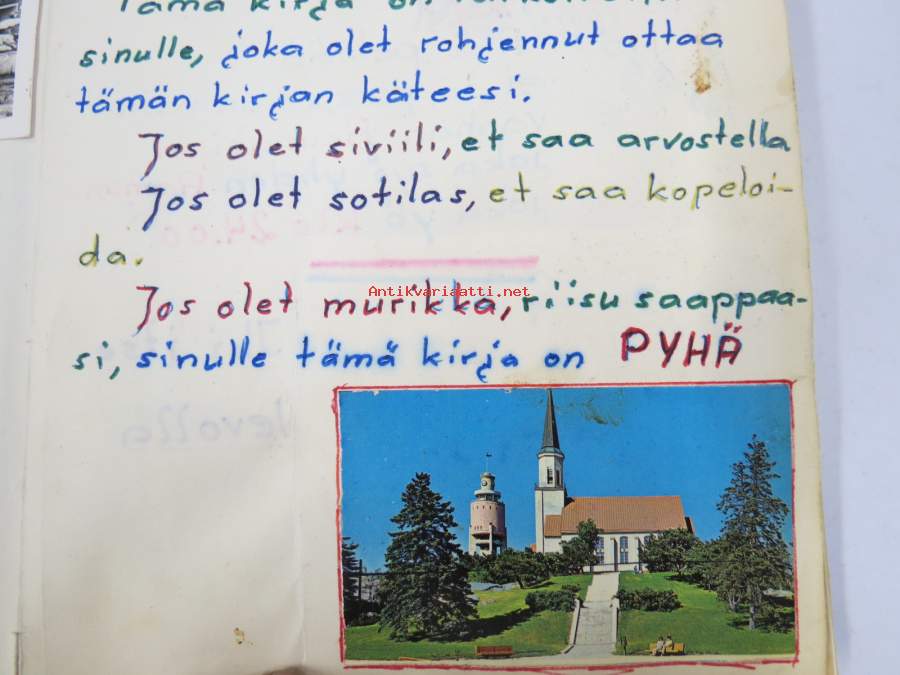 Tämä kirja on
sinulle, joka olet rohjennut ottaa
tämän kirjan käteesi.
Jos olet siviili, et saa arvostella
Jos olet sotilas, et saa kopeloi-
da.
Jos olet murikka, riisu saappaa-
Antikvariaatti.net
si, sinulle tämä kirja on PYHÄ